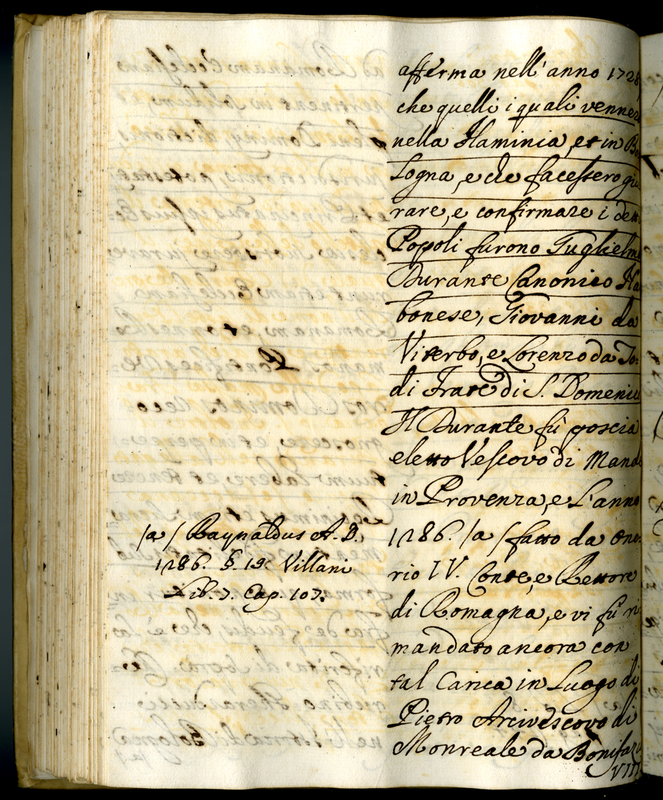 afferma nell'anno 1728
che quelli i quali venner
nella Flaminia, et in Bo
logna, e che facessero giu
rare, e confirmare i dett
Popoli furono Guglielmo
Durante Canonico Nar
bonese, Giovanni da
Viterbo, e Lorenzo da To
di Frate di S. Domenico
Il Durante fù poscia
eletto Vescovo di Mand
in Provenza, e l'anno
1286. /a/ fatto da Ono
rio IV. Conte, e Rettore
di Romagna, e vi fù ri
mandato ancora con
tal Carica in Luogo di
Pietro Arcivescovo di
Monreale da Bonifazi
VIII
/a/ Raynaldus A. D.
1286. §. 19. Villani
Lib. 7. Cap. 107.